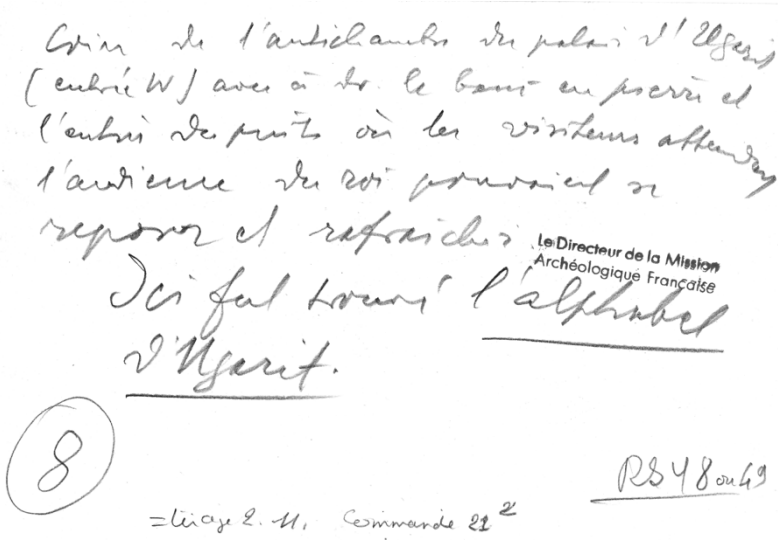 Coin de l'antichambre du palais d'Ugarit
(entrée W) avec à dr. le banc en pierre et
l'entrée du puits où les visiteurs attendant
l'audience du roi pouvaient se
reposer et rafraichir.
Le Directeur de la Mission
Archéologique Française
Ici fut trouvé l'alphabet
d'Ugarit.
8
RS 48 ou 49
= tirage 2. 11. Commande 21 2